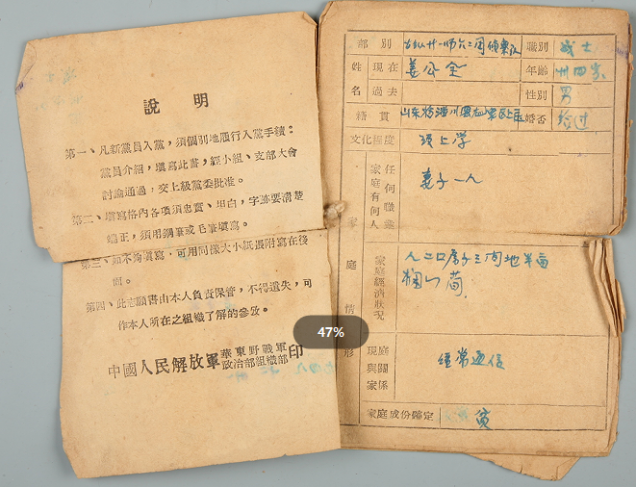 說明
第一、凡新黨員入黨，須個別地履行入黨手續：
黨員介紹，填寫此書，經小組、支部大會
討論通過，交上級黨委批准。
第二、填寫格內各項須忠實、坦白，字迹要清楚
端正，須用鋼筆或毛筆填寫。
第三、如不夠填寫，可用同樣大小紙張附寫在後
面。
第四、此志願書由本人負責保管，不得遺失，可
作本人所在之組織了解的參攷。
中國人民解放軍華東野戰軍政治部組織部印
部別 職別 战士
姓名 現在 姜公全 年齡 卅四岁
過去 性別 男
籍貫 山东 婚否
文化程度 上学
家庭情形
家庭有何人 任何職業 妻子一人
家庭經濟狀況 人二口房子三间地半亩
現與家庭關係 经常通信
家庭成份鑑定 贫
47%